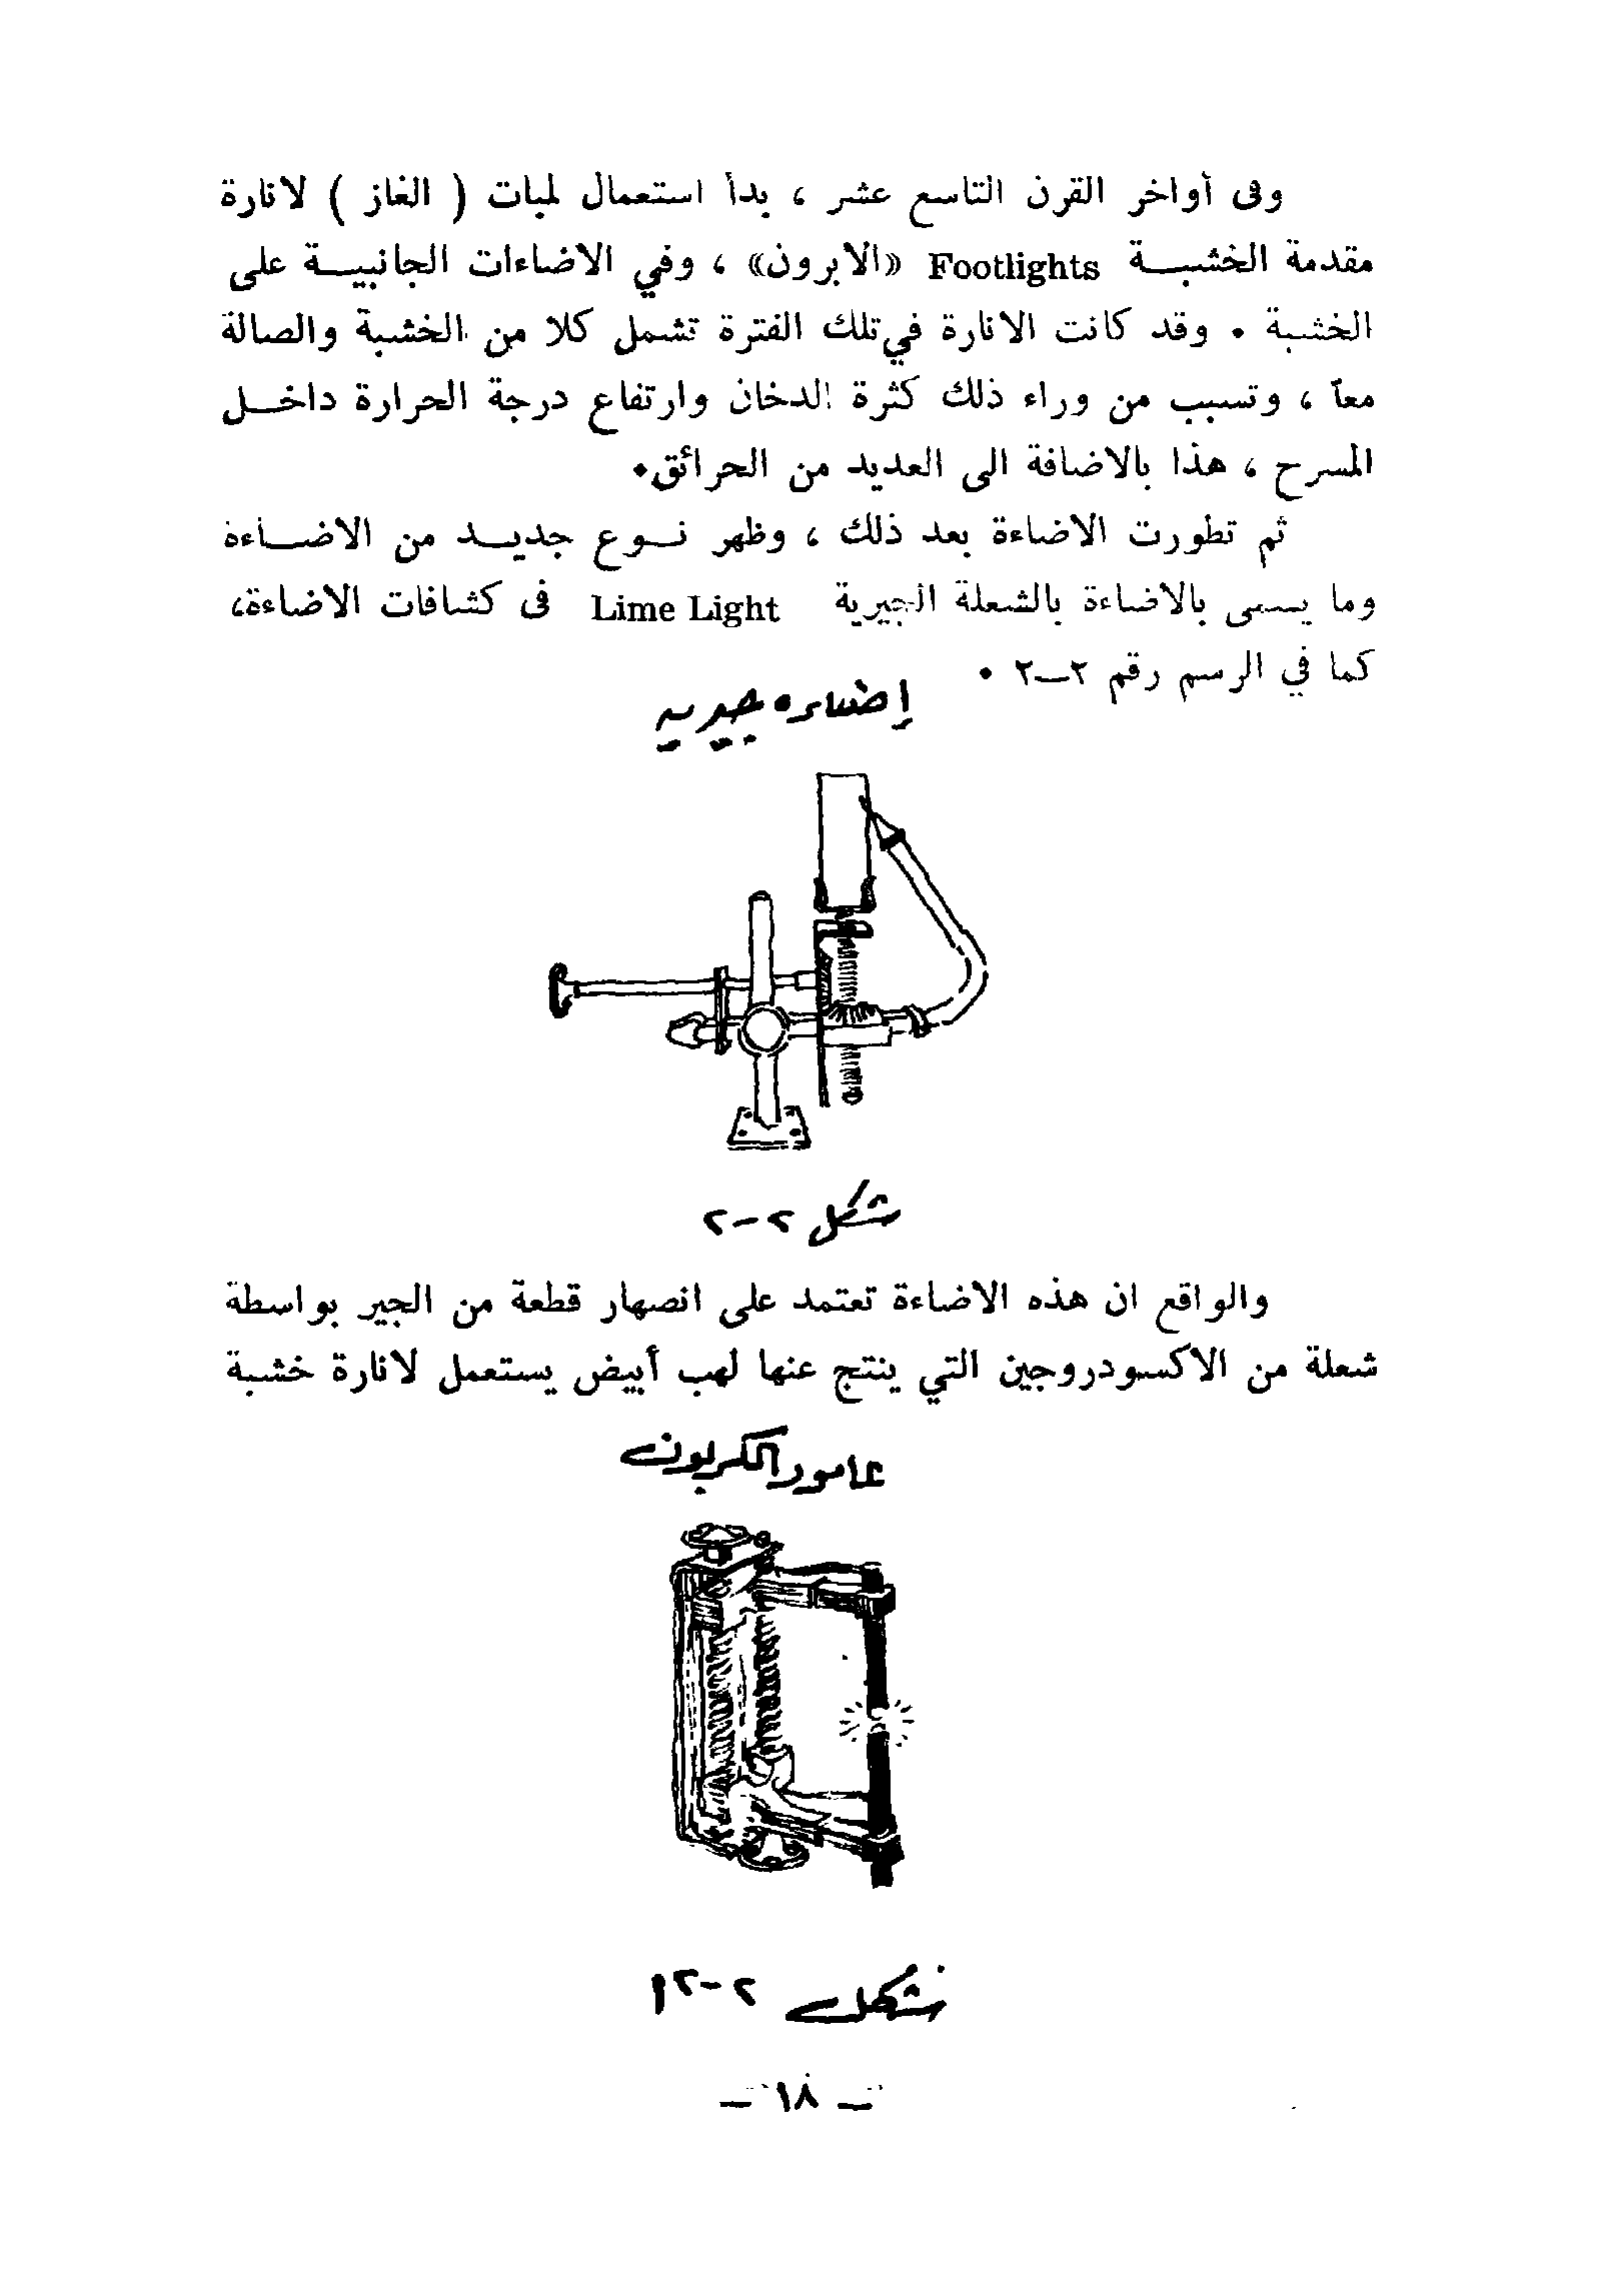 وفى أواخر القرن التاسع عشر ، بدأ استعمال لمبات ( الغاز ) لانارة
مقدمة الخشبـــة Footlights «الابرون» ، وفي الاضاءات الجانبيـــة على
الخشبة . وقد كانت الانارة في تلك الفترة تشمل كلا من الخشبة والصالة
معاً ، وتسبب من وراء ذلك كثرة الدخان وارتفاع درجة الحرارة داخـــل
المسرح ، هذا بالاضافة الى العديد من الحرائق.
ثم تطورت الاضاءة بعد ذلك ، وظهر نـــوع جديـــد من الاضـــاءة
وما يسمى بالاضاءة بالشعلة الجيرية Lime Light فى كشافات الاضاءة،
كما في الرسم رقم ٢—٢ .
إضاءه جيريه
شكل ٢-٢
والواقع ان هذه الاضاءة تعتمد على انصهار قطعة من الجير بواسطة
شعلة من الاكسودروجين التي ينتج عنها لهب أبيض يستعمل لانارة خشبة
عامود الكربون
شكل ٢-٢١
— ١٨ —